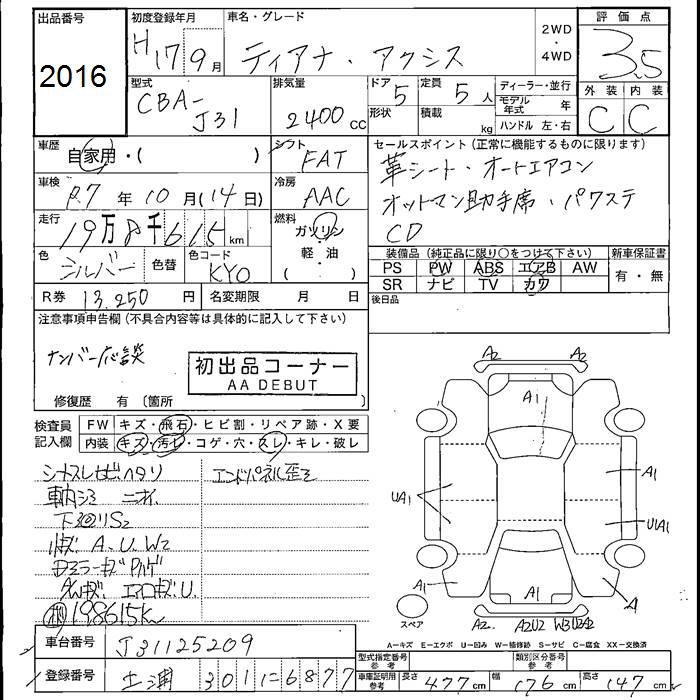 出品番号
2016
初度登録年月
H17 9月
車名・グレード
ティアナ・アクシス
2WD
・
4WD
評価点
3.5
型式
CBA-
J31
排気量
2400cc
ドア 5
形状
定員 5人
積載 kg
ディーラー・並行
モデル年式 年
ハンドル 左・右
外装 内装
C C
車歴
自家用・( )
シフト
FAT
セールスポイント(正常に機能するものに限ります)
革シート・オートエアコン
オットマン助手席・パワステ
CD
車検
R7年10月(14日)
冷房
AAC
走行
19万8千615km
燃料
ガソリン
・
軽・油
( )
色
シルバー
色替
色コード
KY0
装備品(純正品に限り○をつけて下さい)
PS PW ABS エアB AW
SR ナビ TV カワ
新車保証書
有・無
R券 13,250円
名変期限 月 日
後日品
注意事項申告欄(不具合内容等は具体的に記入して下さい)
ナンバー応談
初出品コーナー
AA DEBUT
修復歴 有(箇所
検査員
記入欄
FW キズ・飛石・ヒビ割・リペア跡・X要
内装 キズ・汚レ・コゲ・穴・スレ・キレ・破レ
シートスレ ヘタリ
エンドパネル歪ミ
車内シミ ニオイ
下廻りS2
A.U.W2
Dミラーキズ
エアロキズ.U.
198615km
A2 A2
A1
A1
UA1
U1A1
A1
A1
A1
スペア
A2 A2U2 W3U2A2
A=キズ E=エクボ U=凹み W=補修跡 S=サビ C=腐食 XX=交換済
車台番号
J31125209
登録番号
土浦 301 6877
型式指定番号
参考
類別区分番号
参考
車庫証明用
参考
長さ 477cm 幅 176cm 高さ 147cm